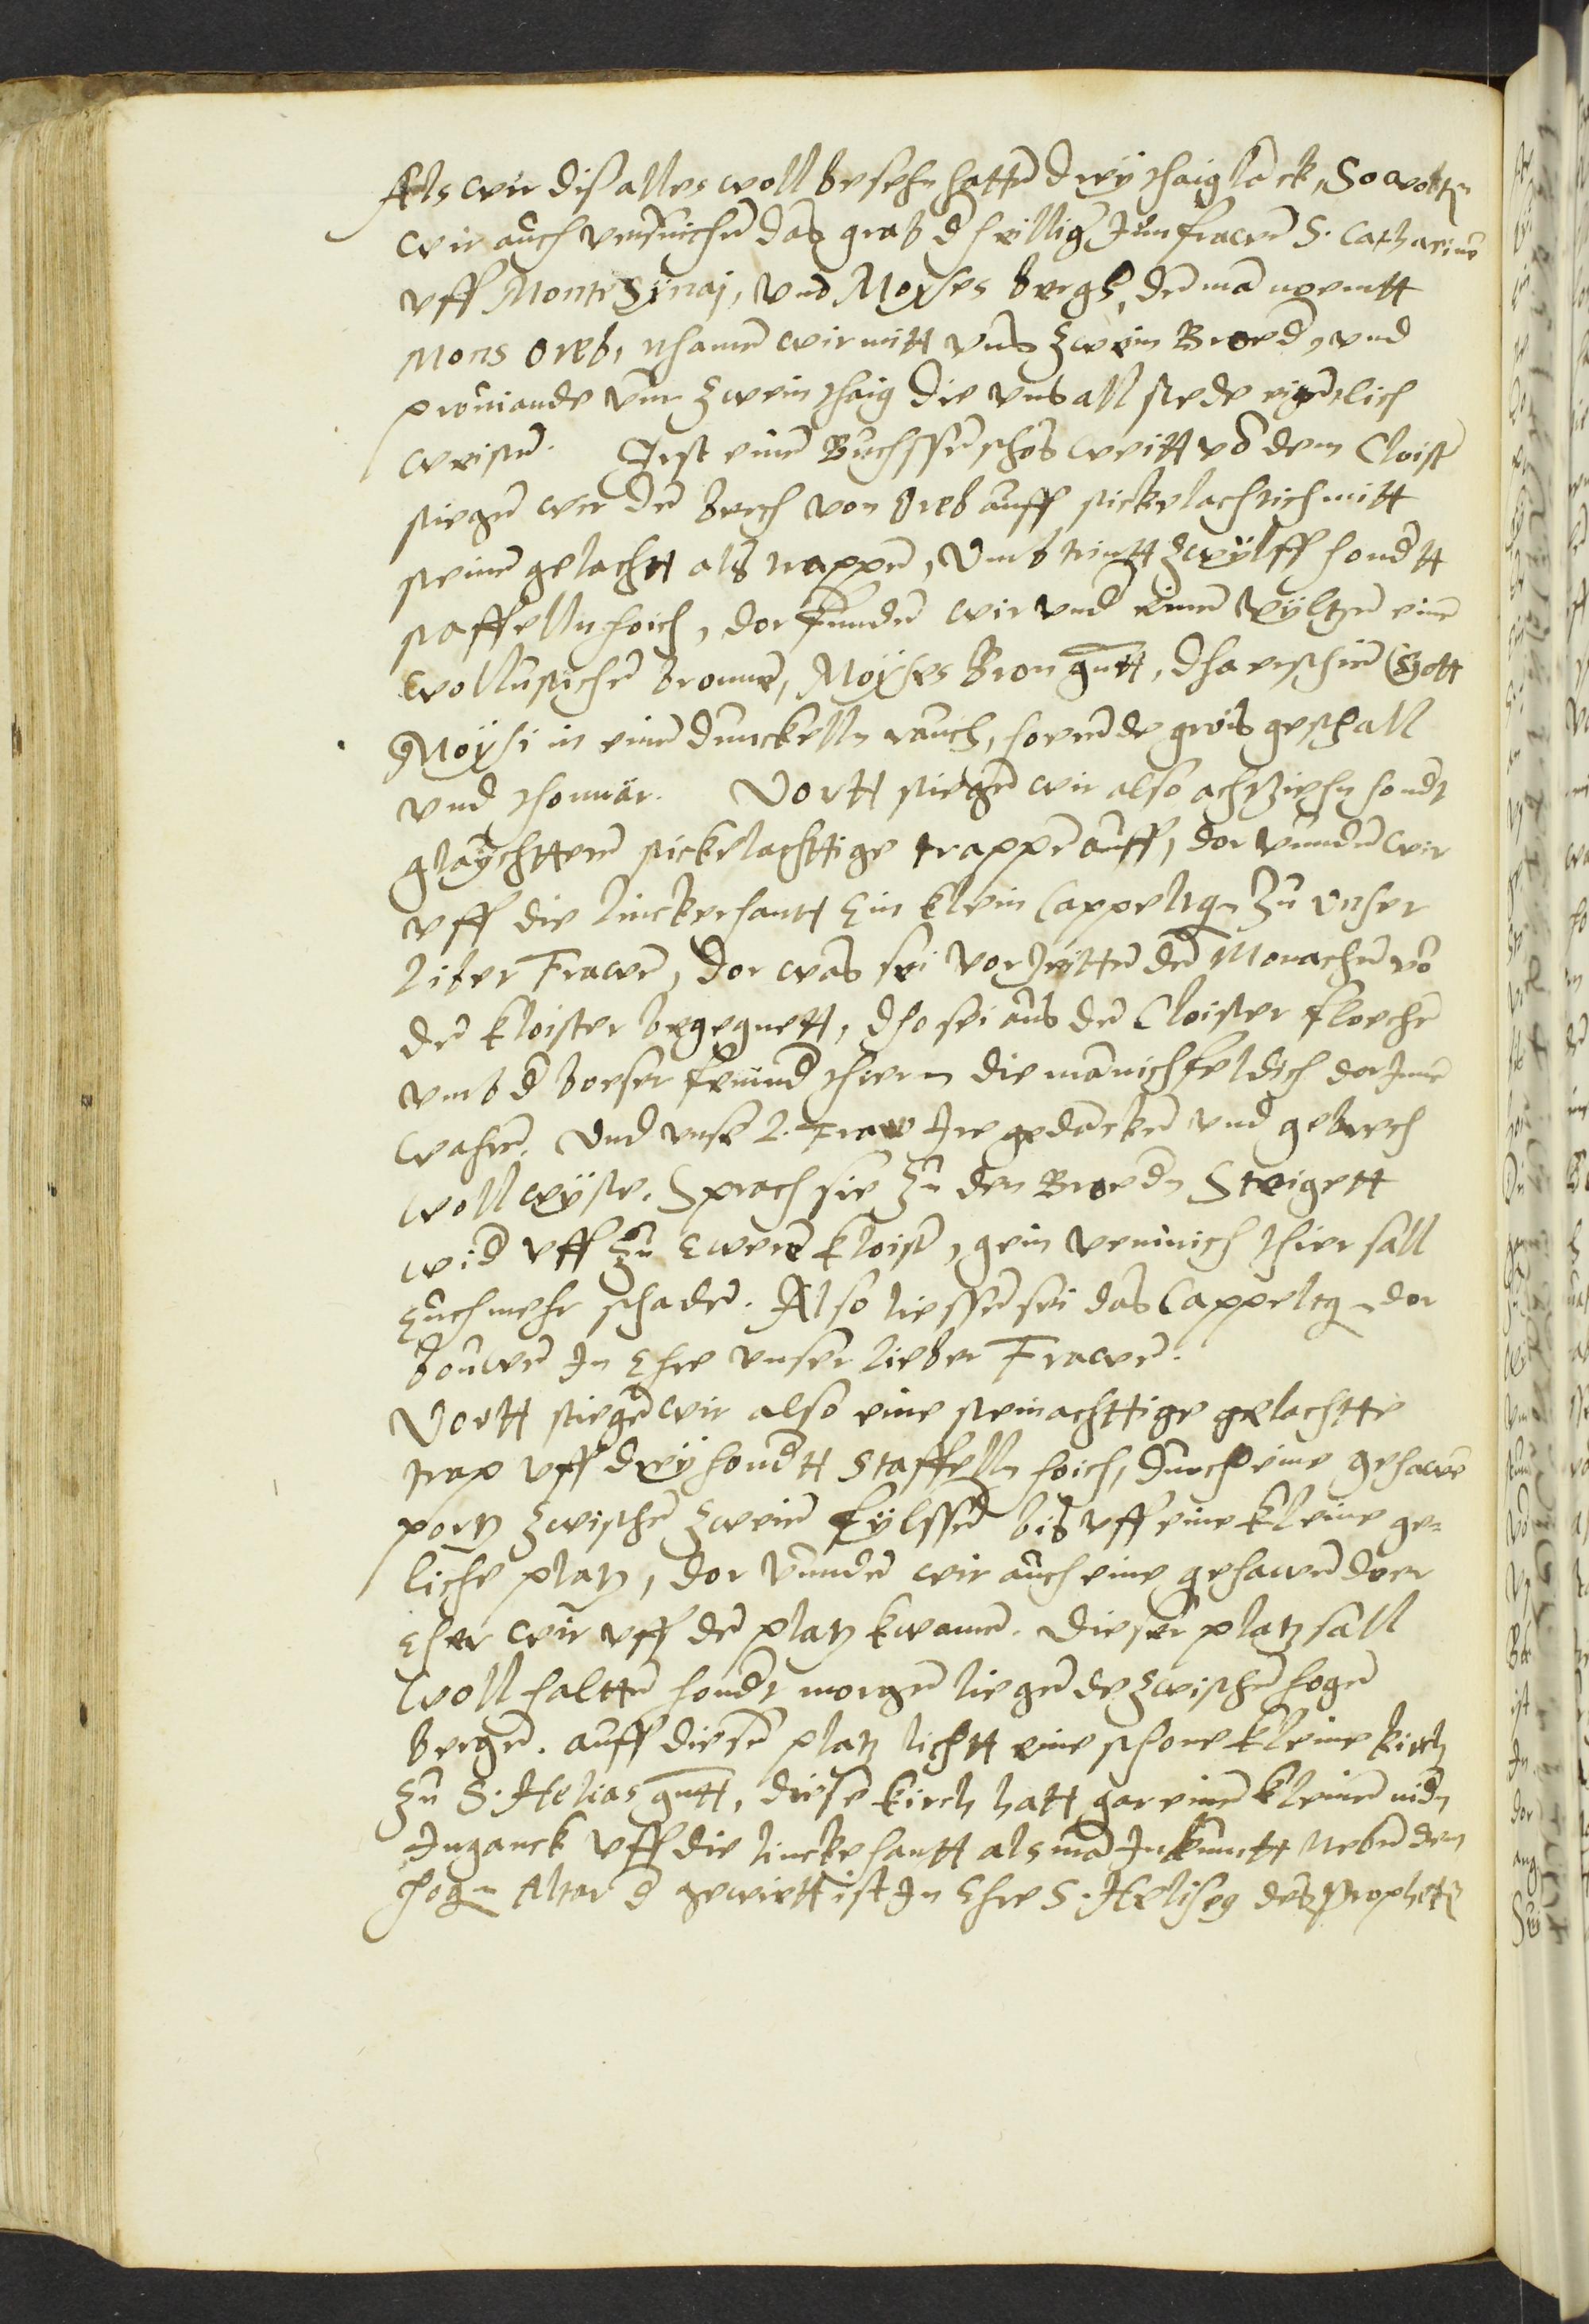 Als wir diß alles woll besehn hatten drey thaig lanck, So wolte
wir auch versuichen das grab d heillig Jumfrawen S. Catharine
uff Monte Synaj, vnd Moyses bergh, den man noemtt
Mons Oreb, nhamen wir mitt vns zwein Broed, vnd
proviande vur zwein thaig die vns all stede eigentlich
weisen. Jrst einen Buchssen schös weitt vō dem Cloist
stiegen wir den berch von Oreb auff stickelachtich mitt
steinen gelachtt als trappen, vmbtrintt zwylff hondtt
staffelln hoich, dor funden wir vnd einen vyltzen einen
wollustichen bronne, Moyses Bron gntt, dha erschien Gott
Moysi in einen dunckelln rauch, hoerende gröis geschall
vnd thonnär. Vortt stiegen wir also achtziehn hondt
glaychtteren stickelachttige trappen auff, dor vunden wir
vff die lincker hantt Ein klein Cappeltgn zu vnser
lieber Frawen, dor was sei vor zeitten den Monachen vō
den kloister begegnett, dho sei aus den Cloister floechen
vmb d boeser feund thieren die mānichfeldich dor jnne
wahren. Vnd vnse L. Fraw Jre gedāncken vnd gebrech
woll wyste. Sprach sie zu den Broedn Steigett
wid vff zu Eweren kloist, gein veninich thier sall
Euch mehr schaden. Also liessen sei das Cappeltgn dor
bouwen Jn Ehre vnser lieber Frawen.
Vortt stiegen wir also eine steinachttige gelachtte
trap vff drey hondtt Staffelln hoich, durch eine gehawen
portz zwischen zweien fylssen bis vff eine kleine ge=
liche platz, dor vunden wir auch eine gehawen doer
Eher wir vff den platz kwamen. Dieser platz sall
woll haltten hondt morgen liegende zwischen hogen
bergen. auff diesen platz lichtt eine schone kleine kirch
zu S. Helias gntt, diese kirch hatt gar einen kleinen nidn
Jnganck vff die lincke hantt als mā Jnkumtt neben den
hogn Altar d gewiett ist Jn Ehre S. Helisey des Prophetē